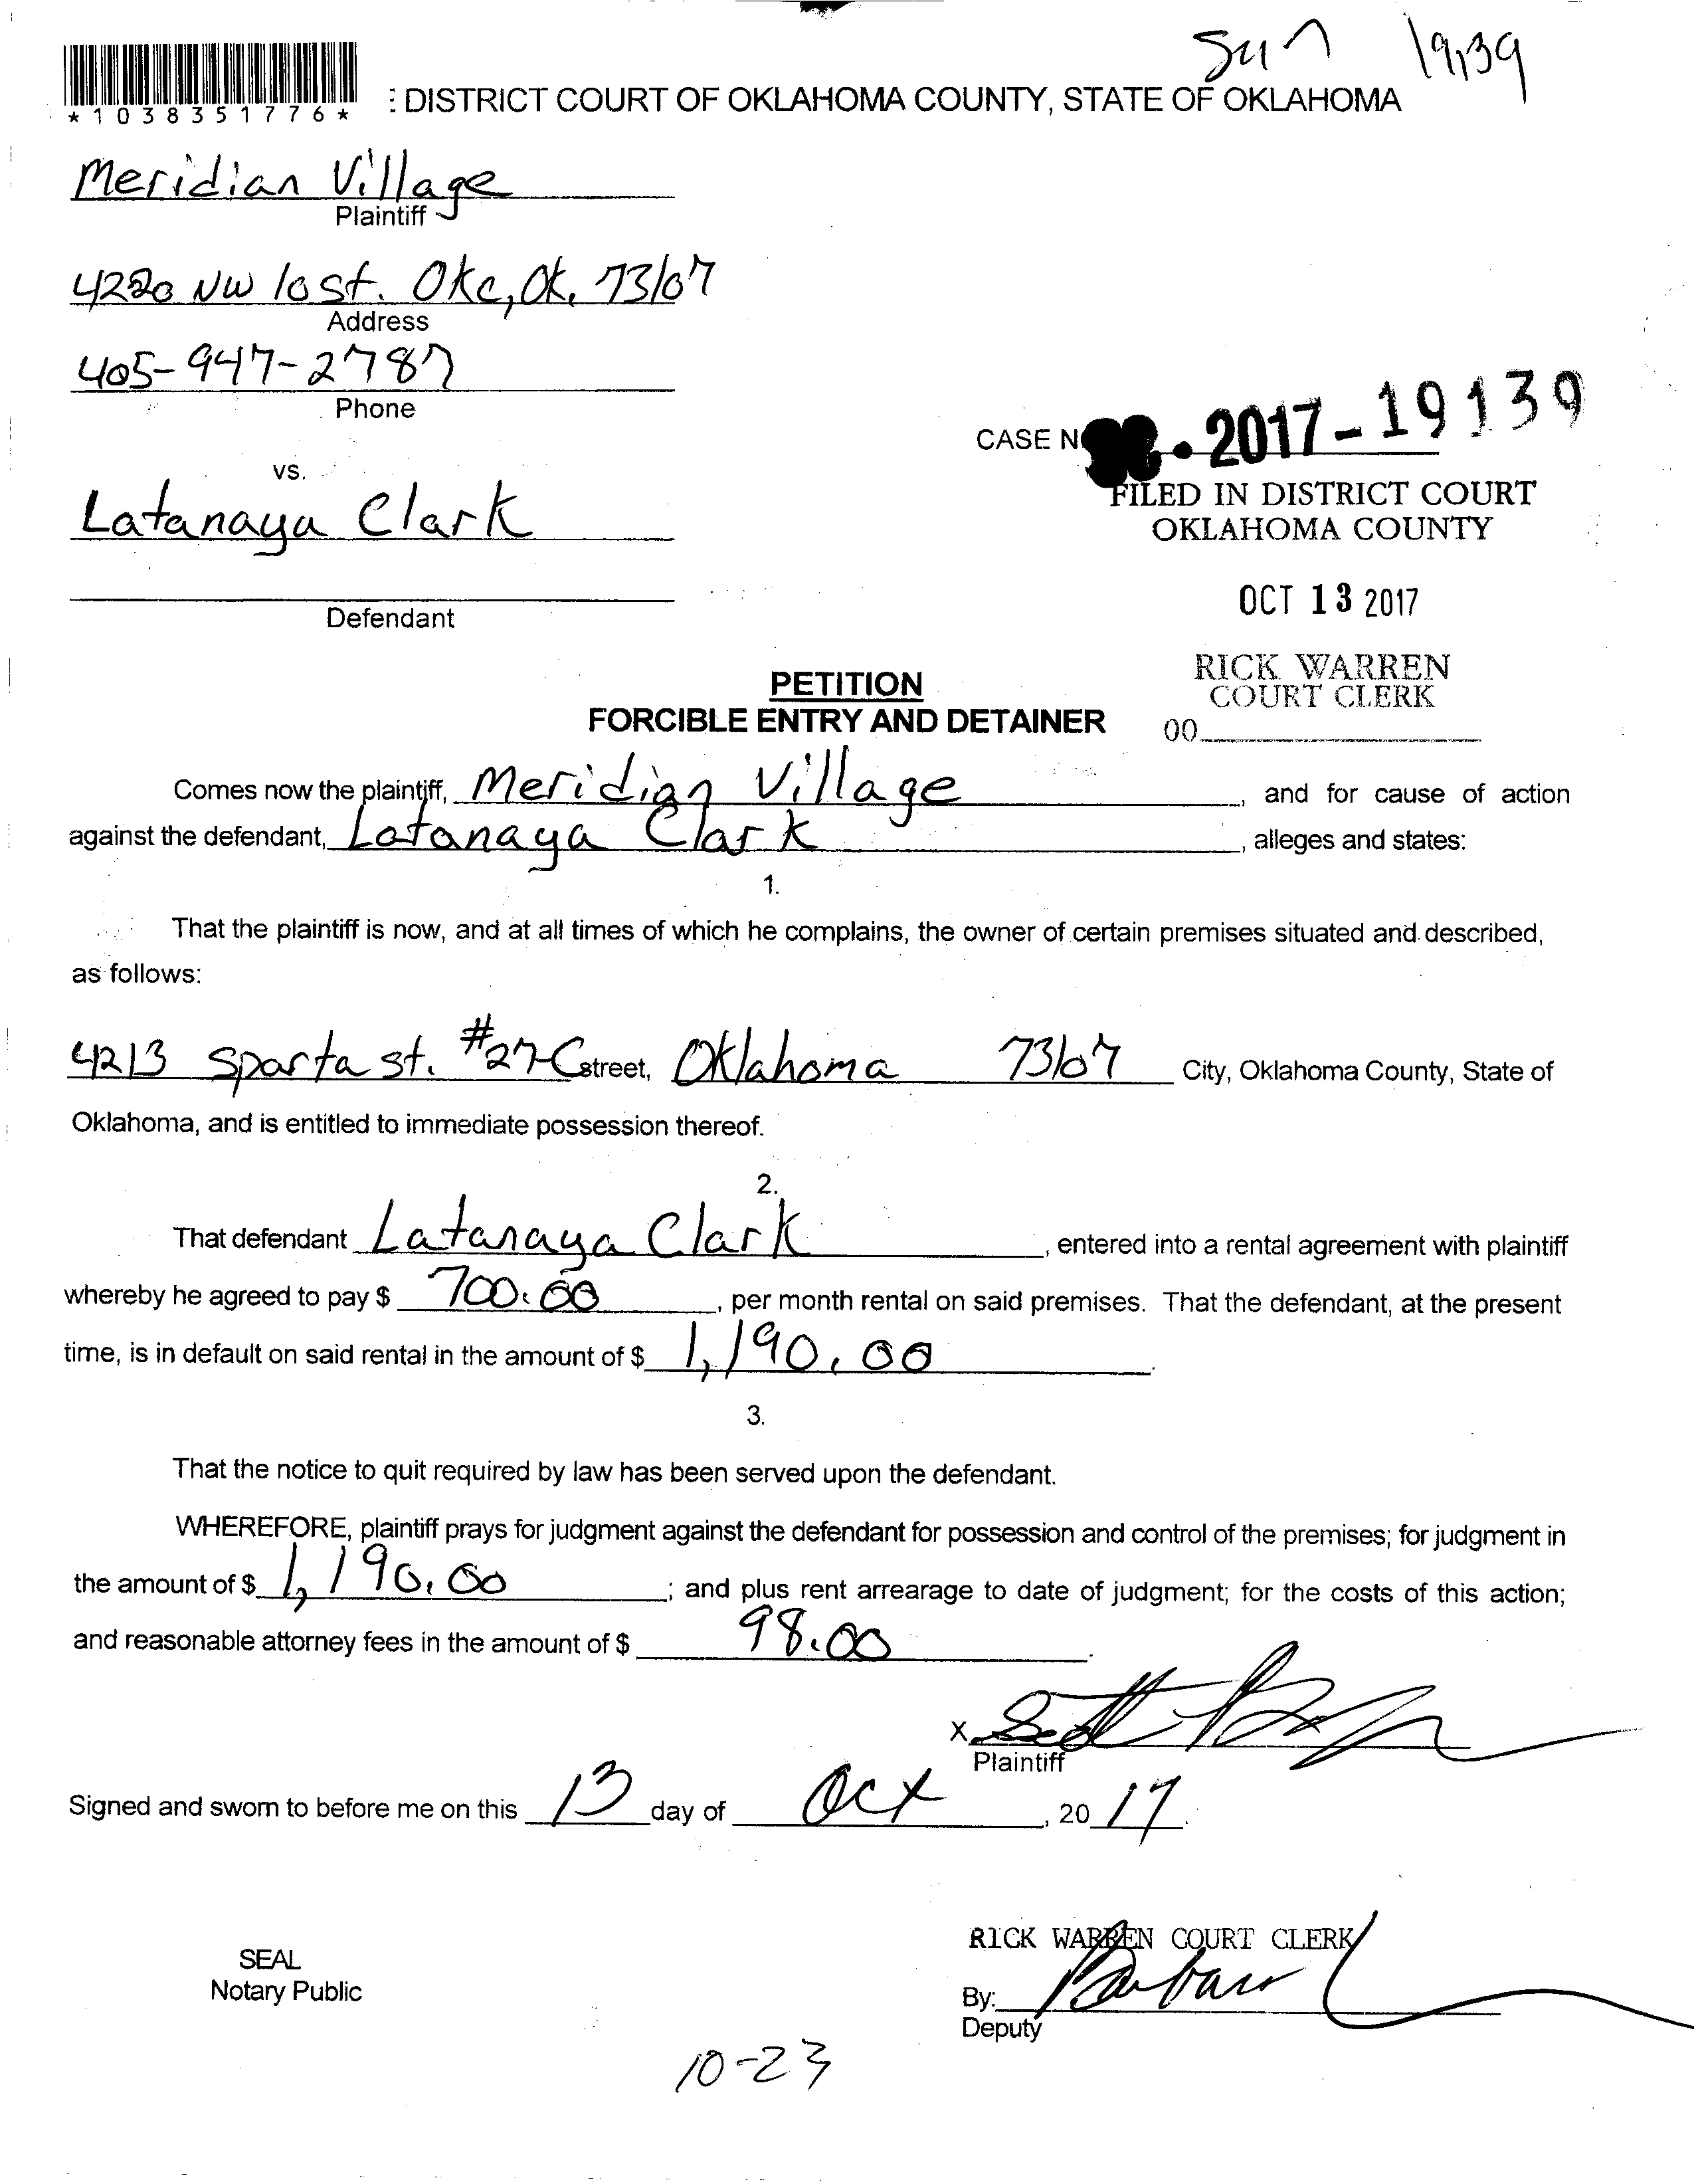 Sun 19,139
*1038351776*
: DISTRICT COURT OF OKLAHOMA COUNTY, STATE OF OKLAHOMA
Meridian Village
Plaintiff
4220 NW 10 st. Okc, Ok. 73107
Address
405-947-2787
Phone
CASE N 2017-19139
vs.
FILED IN DISTRICT COURT
OKLAHOMA COUNTY
Latanaya Clark
OCT 13 2017
Defendant
RICK WARREN
COURT CLERK
00
PETITION
FORCIBLE ENTRY AND DETAINER
Comes now the plaintiff, Meridian Village, and for cause of action
against the defendant, Latanaya Clark, alleges and states:
1.
That the plaintiff is now, and at all times of which he complains, the owner of certain premises situated and described,
as follows:
4213 Sparta st. #27-C street, Oklahoma 73107 City, Oklahoma County, State of
Oklahoma, and is entitled to immediate possession thereof.
2.
That defendant Latanaya Clark, entered into a rental agreement with plaintiff
whereby he agreed to pay $ 700.00, per month rental on said premises. That the defendant, at the present
time, is in default on said rental in the amount of $ 1,190.00.
3.
That the notice to quit required by law has been served upon the defendant.
WHEREFORE, plaintiff prays for judgment against the defendant for possession and control of the premises; for judgment in
the amount of $ 1,190.00; and plus rent arrearage to date of judgment; for the costs of this action;
and reasonable attorney fees in the amount of $ 98.00.
X Scott
Plaintiff
Signed and sworn to before me on this 13 day of Oct, 20 17.
RICK WARREN COURT CLERK
SEAL
Notary Public
By:
Deputy
10-23